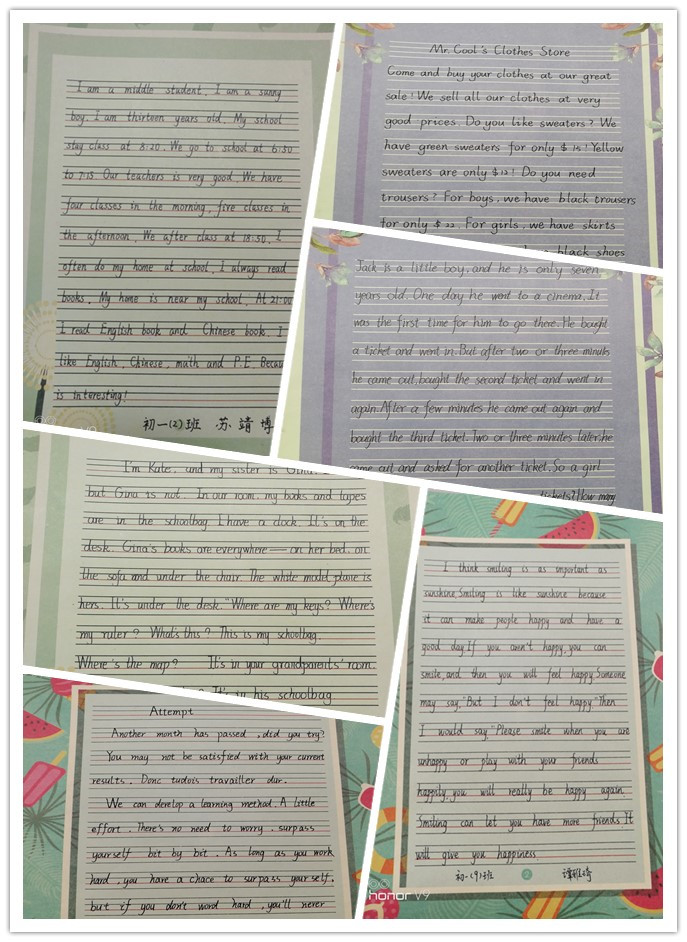 I am a middle student. I am a sunny
boy. I am thirteen years old. My school
stay class at 8:20. We go to school at 6:50
to 7:15. Our teachers is very good. We have
four classes in the morning, five classes in
the afternoon. We after class at 18:50. I
often do my home at school. I always read
books. My home is near my school. At 21:00
I read English book and Chinese book. I
like English, Chinese, math and P.E. Becau
is interesting!
初一(2)班 苏靖博
Mr. Cool's Clothes Store
Come and buy your clothes at our great
sale! We sell all our clothes at very
good prices. Do you like sweaters? We
have green sweaters for only $15! Yellow
sweaters are only $12! Do you need
trousers? For boys, we have black trousers
for only $22. For girls, we have skirts
black shoes
Jack is a little boy, and he is only seven
years old. One day he went to a cinema. It
was the first time for him to go there. He bought
a ticket and went in. But after two or three minuts
he came out, bought the second ticket and went in
again. After a few minutes he came out again and
bought the third ticket. Two or three minutes later, he
came out and asked for another ticket. So a girl
tickets? How many
I'm Kate, and my sister is Gina. I
but Gina is not. In our room, my books and tapes
are in the schoolbag. I have a clock. It's on the
desk. Gina's books are everywhere — on her bed, on
the sofa and under the chair. The white model plane is
hers. It's under the desk. "Where are my keys? Where's
my ruler? What's this? This is my schoolbag.
Where's the map? It's in your grandparents' room.
It's in his schoolbag
Attempt
Another month has passed, did you try?
You may not be satisfied with your current
results. Donc tudois travailler dur.
We can develop a learning method. A little
effort. There's no need to worry. surpass
yourself bit by bit. As long as you work
hard, you have a chace to surpass yourself.
but if you don't word hard, you'll never
I think smiling is as important as
sunshine. Smiling is like sunshine because
it can make people happy and have a
good day. If you aren't happy, you can
smile, and then you will feel happy. Someone
may say, "But I don't feel happy." Then
I would say, "Please smile when you are
unhappy or play with your friends
happily, you will really be happy again.
Smiling can let you have more friends. It
will give you happiness.
初一(9)班 2
honor V9